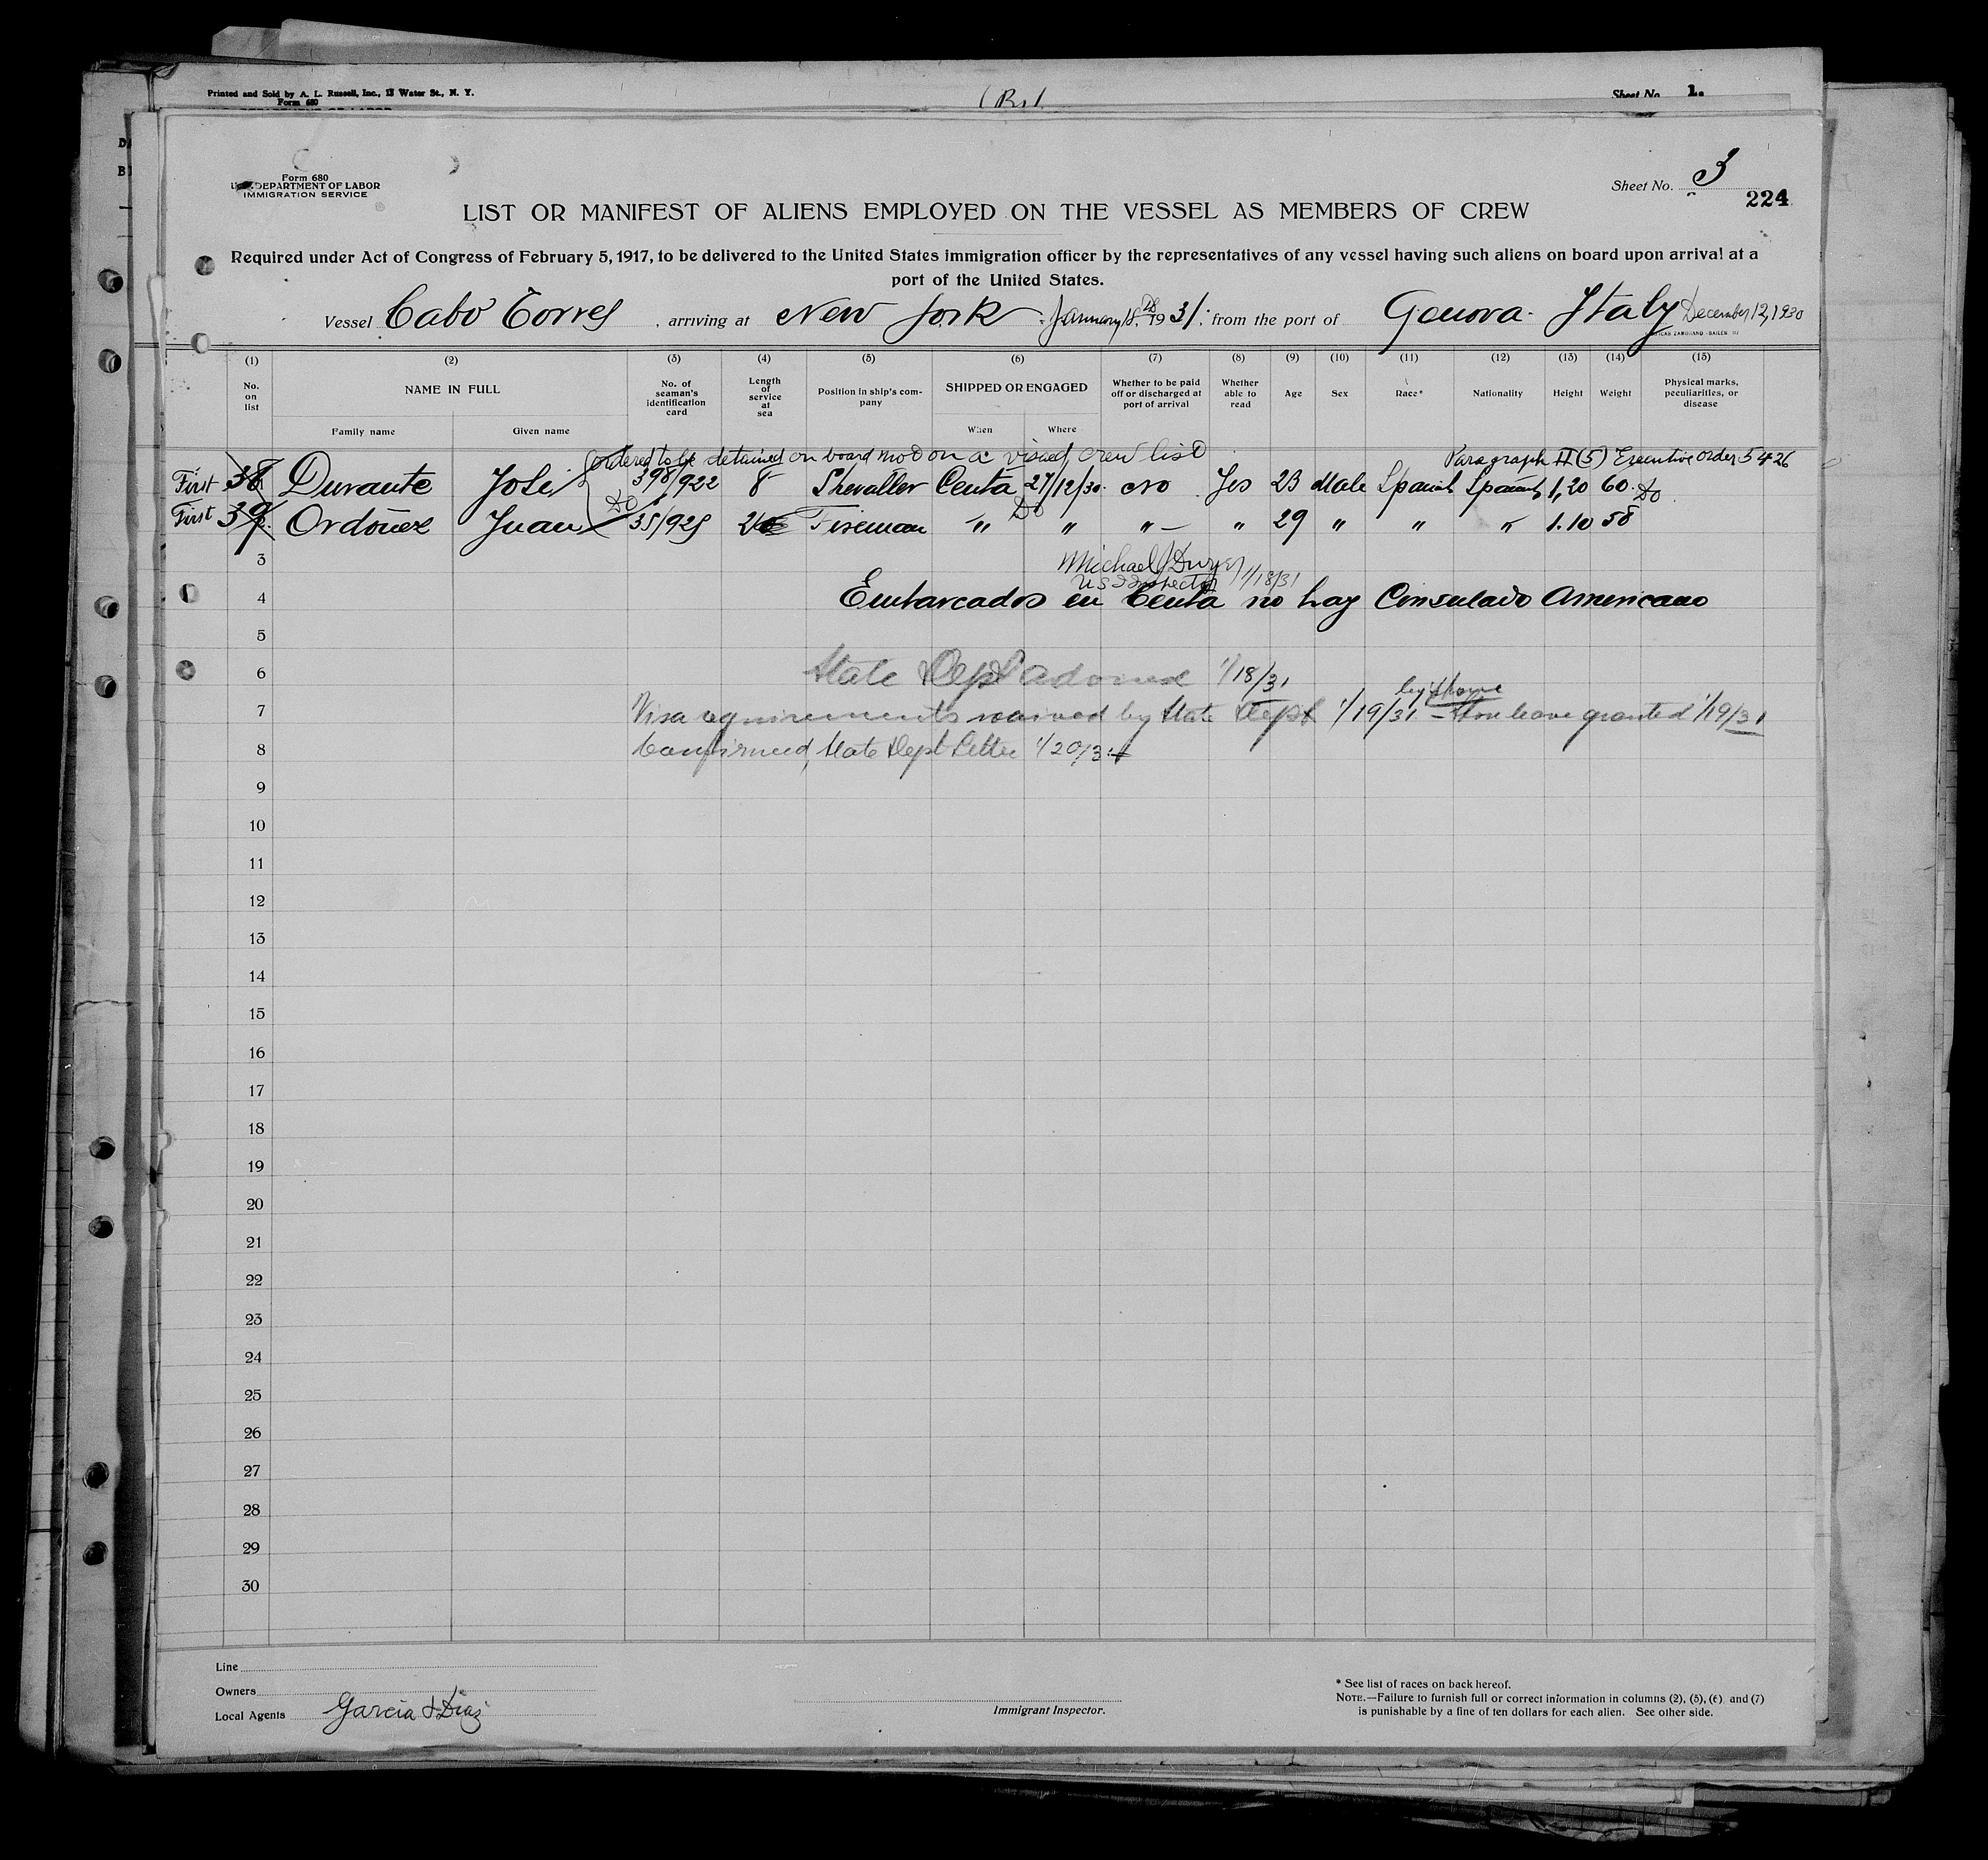 Printed and Sold by A. L. Russell, Inc., 13 Water St., N. Y.
Form 680
Sheet No. 1.
Form 680
DEPARTMENT OF LABOR
IMMIGRATION SERVICE
Sheet No. 3
224
LIST OR MANIFEST OF ALIENS EMPLOYED ON THE VESSEL AS MEMBERS OF CREW
Required under Act of Congress of February 5, 1917, to be delivered to the United States immigration officer by the representatives of any vessel having such aliens on board upon arrival at a
port of the United States.
Vessel Cabo Torres, arriving at New York, January 18, 1931, from the port of Genova. Italy December 12, 1930
(1) (2) (3) (4) (5) (6) (7) (8) (9) (10) (11) (12) (13) (14) (15)
No. on list
NAME IN FULL
Family name
Given name
No. of seaman's identification card
Length of service at sea
Position in ship's company
SHIPPED OR ENGAGED
When
Where
Whether to be paid off or discharged at port of arrival
Whether able to read
Age
Sex
Race*
Nationality
Height
Weight
Physical marks, peculiarities, or disease
Ordered to be detained on board not on a visaed crew list Paragraph II (5) Executive order 5426
First 38 Durante José 398/922 8 Ceuta 27/12/30. No Yes 23 Male Spanish Spanish 1,20 60. Do
First 39 Ordoñez Juan Do 35/925 Fireman " Do " " — " 29 " " " 1.10 58
3
Michael J Dwyer
US Inspector 1/18/31
4 Embarcados en Ceuta no hay Consulado Americano
5
6 State Dept advised 1/18/31
by phone
7 Visa requirements waived by State Dept 1/19/31 – Shore leave granted 1/19/31
8 Confirmed, State Dept Letter 1/20/31
9
10
11
12
13
14
15
16
17
18
19
20
21
22
23
24
25
26
27
28
29
30
Line
Owners
Local Agents Garcia & Diaz
Immigrant Inspector.
* See list of races on back hereof.
NOTE.—Failure to furnish full or correct information in columns (2), (5), (6) and (7)
is punishable by a fine of ten dollars for each alien. See other side.